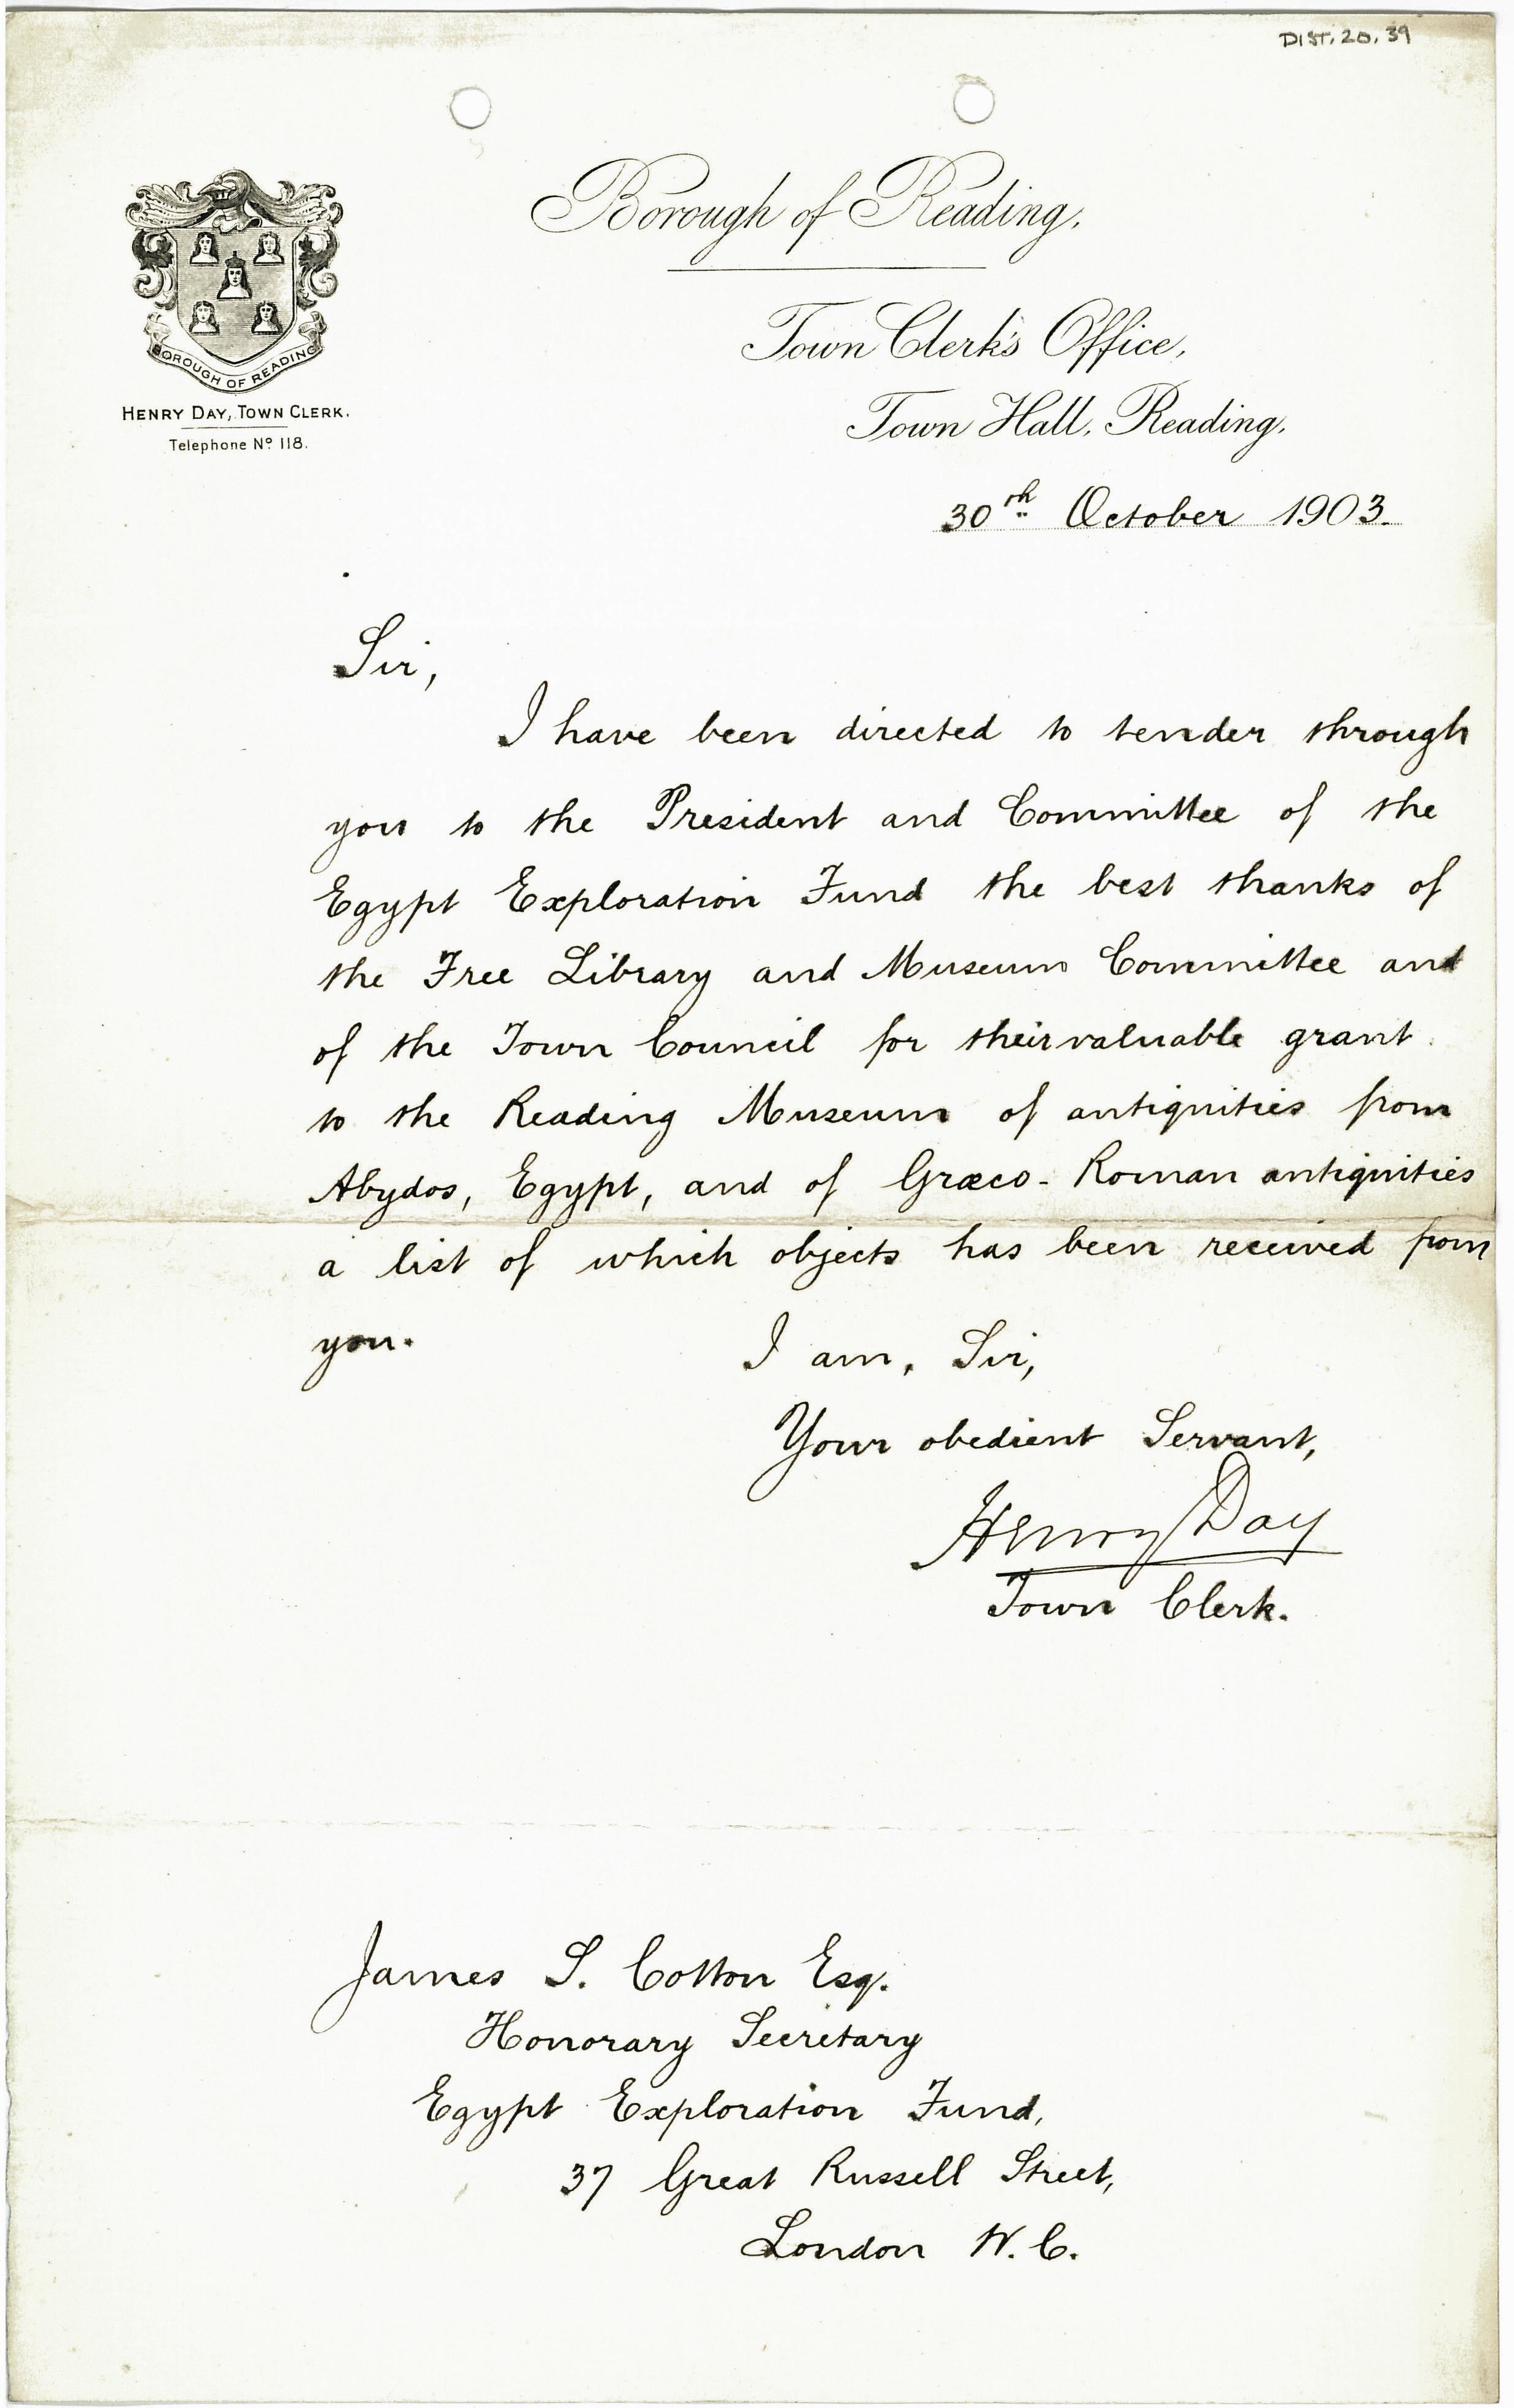 DIST. 20. 39
Borough of Reading.
BOROUGH OF READING
HENRY DAY, TOWN CLERK.
Telephone No. 118.
Town Clerk's Office,
Town Hall, Reading.
30th October 1903.
Sir,
I have been directed to tender through
you to the President and Committee of the
Egypt Exploration Fund the best thanks of
the Free Library and Museum Committee and
of the Town Council for their valuable grant
to the Reading Museum of antiquities from
Abydos, Egypt, and of Græco-Roman antiquities
a list of which objects has been received from
you.
I am, Sir,
Your obedient Servant,
Henry Day
Town Clerk.
James S. Cotton Esq.
Honorary Secretary
Egypt Exploration Fund,
37 Great Russell Street,
London W.C.